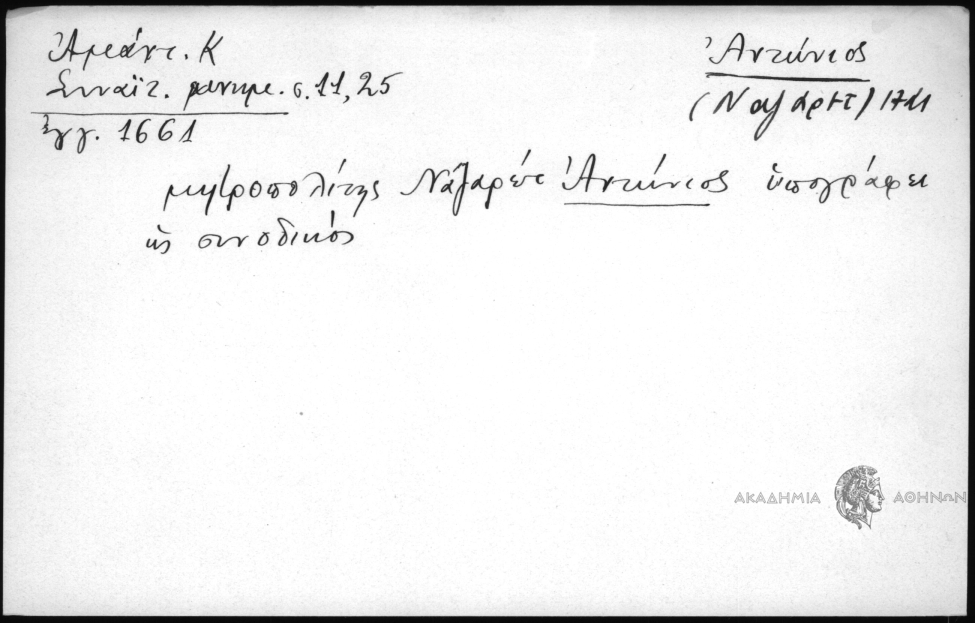 Ἀμάντ. Κ
Σιναϊτ. μνημ. σ. 11, 25
Ἔγγ. 1661
Ἀντώνιος
(Ναζαρὲτ)
μητροπολίτης Ναζαρὲτ Ἀντώνιος ὑπογράφει
ὡς συνοδικός
ΑΚΑΔΗΜΙΑ ΑΘΗΝΩΝ